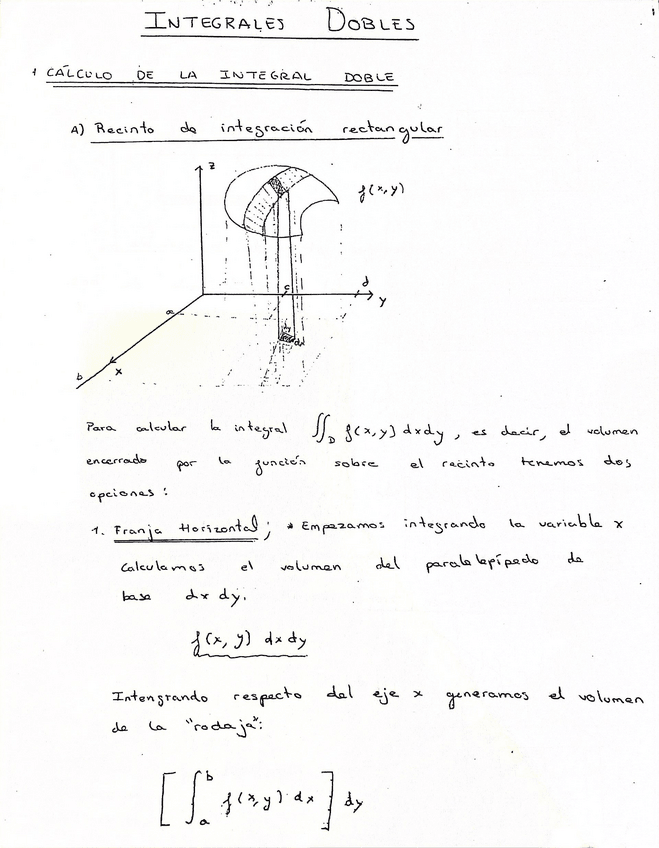 1
INTEGRALES DOBLES
1 CÁLCULO DE LA INTEGRAL DOBLE
A) Recinto de integración rectangular
z
f(x,y)
c
d
y
a
dx
b
x
Para calcular la integral ∬_D f(x,y) dxdy, es decir, el volumen
encerrado por la función sobre el recinto tenemos dos
opciones:
1. Franja Horizontal; * Empezamos integrando la variable x
Calculamos el volumen del paralelepípedo de
base dx dy.
f(x,y) dxdy
Intengrando respecto del eje x generamos el volumen
de la "rodaja":
[ ∫_a^b f(x,y) dx ] dy